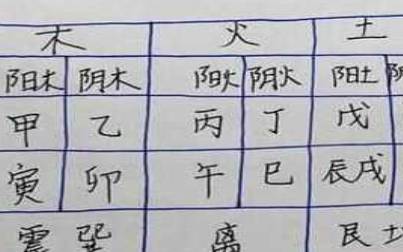 木 火 土
阳木 阴木 阳火 阴火 阳土
甲 乙 丙 丁 戊
寅 卯 午 巳 辰戌
震 巽 离 艮